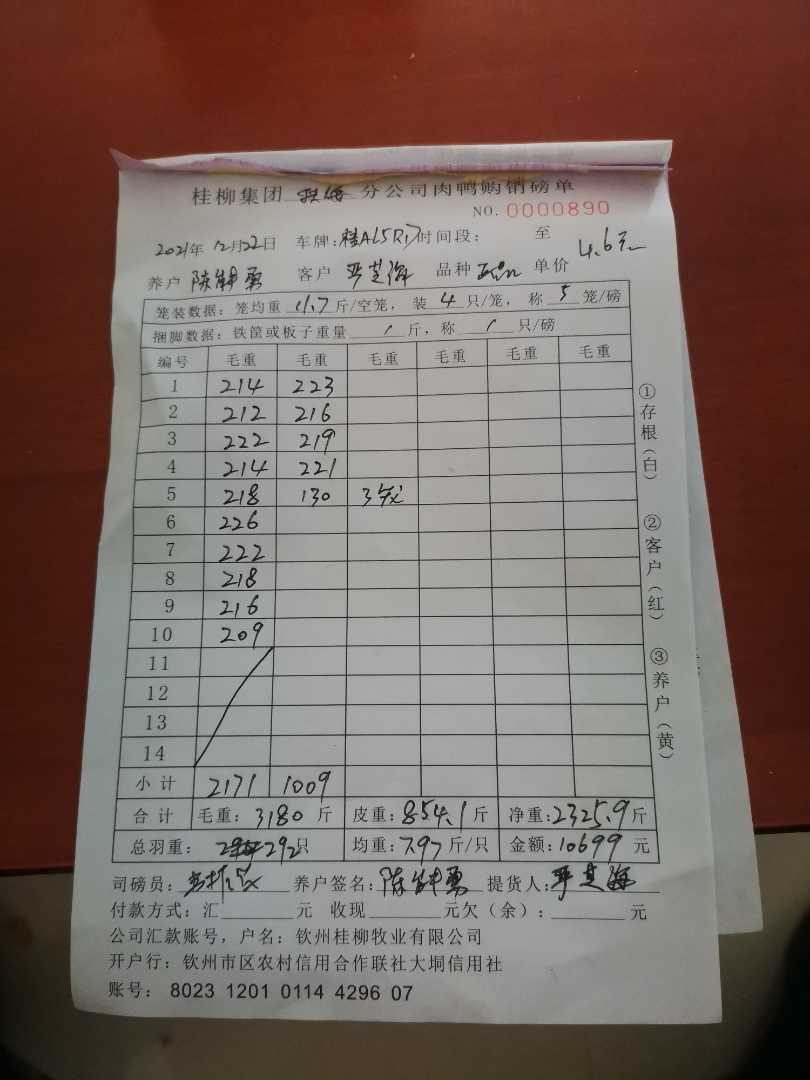 桂柳集团 钦海 分公司肉鸭购销磅单
NO. 0000890
2021年 12月22日 车牌: 桂AL5R17 时间段: 至
养户 陈 勇 客户 严芝海 品种 单价 4.6元
笼装数据: 笼均重 11.7 斤/空笼, 装 4 只/笼, 称 5 笼/磅
捆脚数据: 铁筐或板子重量 / 斤, 称 / 只/磅
编号 毛重 毛重 毛重 毛重 毛重 毛重
1 214 223
2 212 216
3 222 219
4 214 221
5 218 130 3笼
6 226
7 222
8 218
9 216
10 209
11
12
13
14
小计 2171 1009
合计 毛重: 3180 斤 皮重: 854.1 斤 净重: 2325.9 斤
总羽重: 292 只 均重: 7.97 斤/只 金额: 10699 元
司磅员: 养户签名: 陈 勇 提货人: 严芝海
付款方式: 汇 元 收现 元欠(余): 元
公司汇款账号, 户名: 钦州桂柳牧业有限公司
开户行: 钦州市区农村信用合作联社大垌信用社
账号: 8023 1201 0114 4296 07
①存根(白)
②客户(红)
③养户(黄)